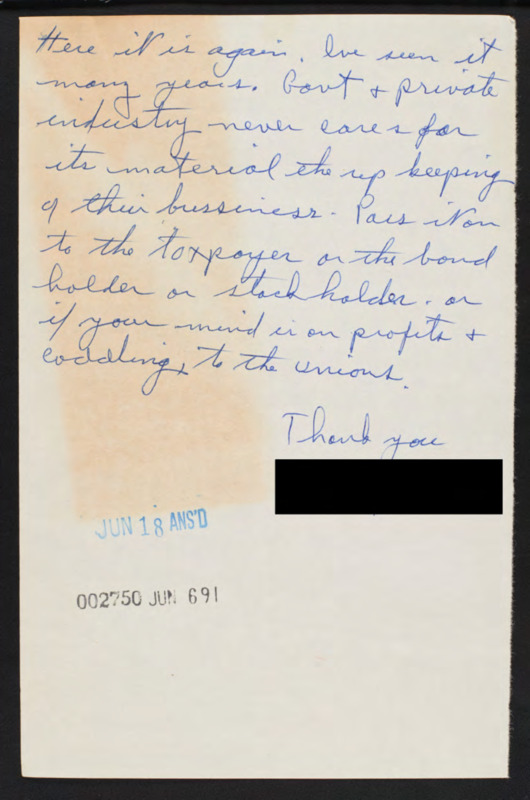 Here it is again. Ive seen it
many years. Govt & private
industry never cares for
its material the up keeping
of their bussiness. Pass it on
to the taxpayer or the bond
holder or stock holder. or
if your mind is on profits &
coddling, to the unions.
Thank you
JUN 18 ANS'D
002750 JUN 691